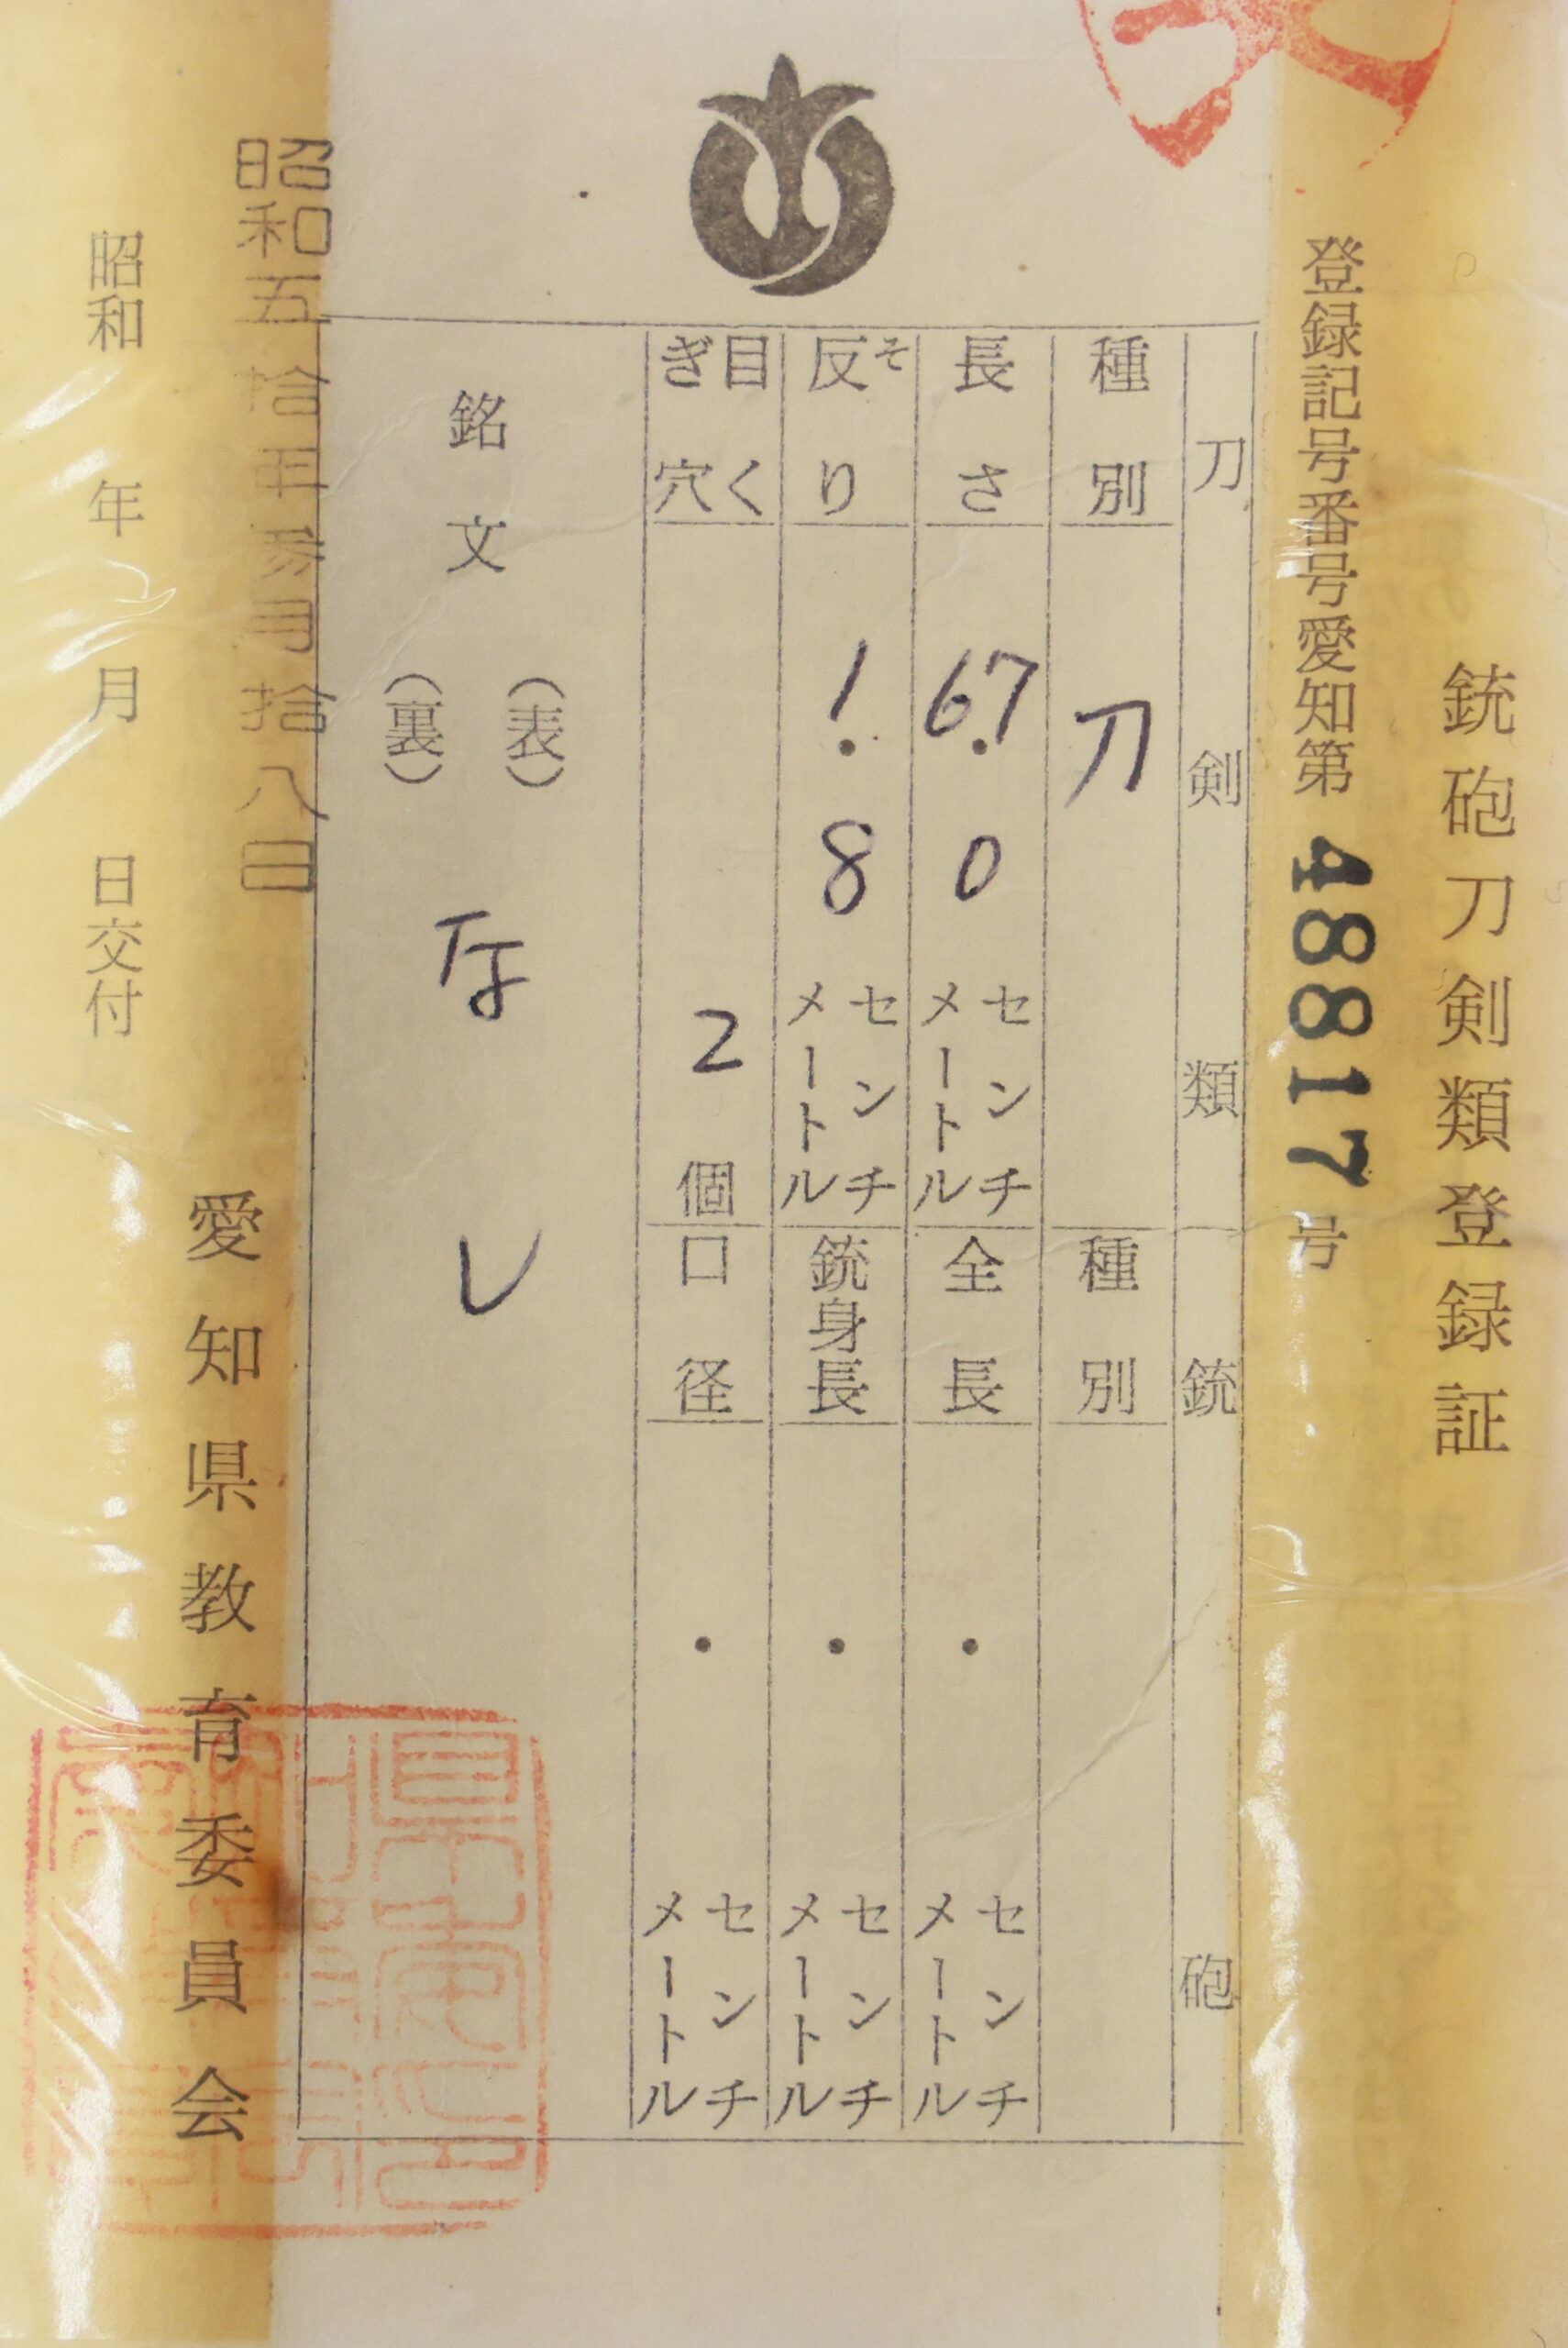 銃砲刀剣類登録証
登録記号番号愛知第48817号
刀剣類
銃砲
種別
刀
種別
長さ
67.0
センチメートル
全長
・
センチメートル
反り
そ
1.8
センチメートル
銃身長
・
センチメートル
目くぎ穴
2個
口径
・
センチメートル
銘文
(表)
(裏)
なし
昭和五拾年参月拾八日
昭和 年 月 日交付
愛知県教育委員会